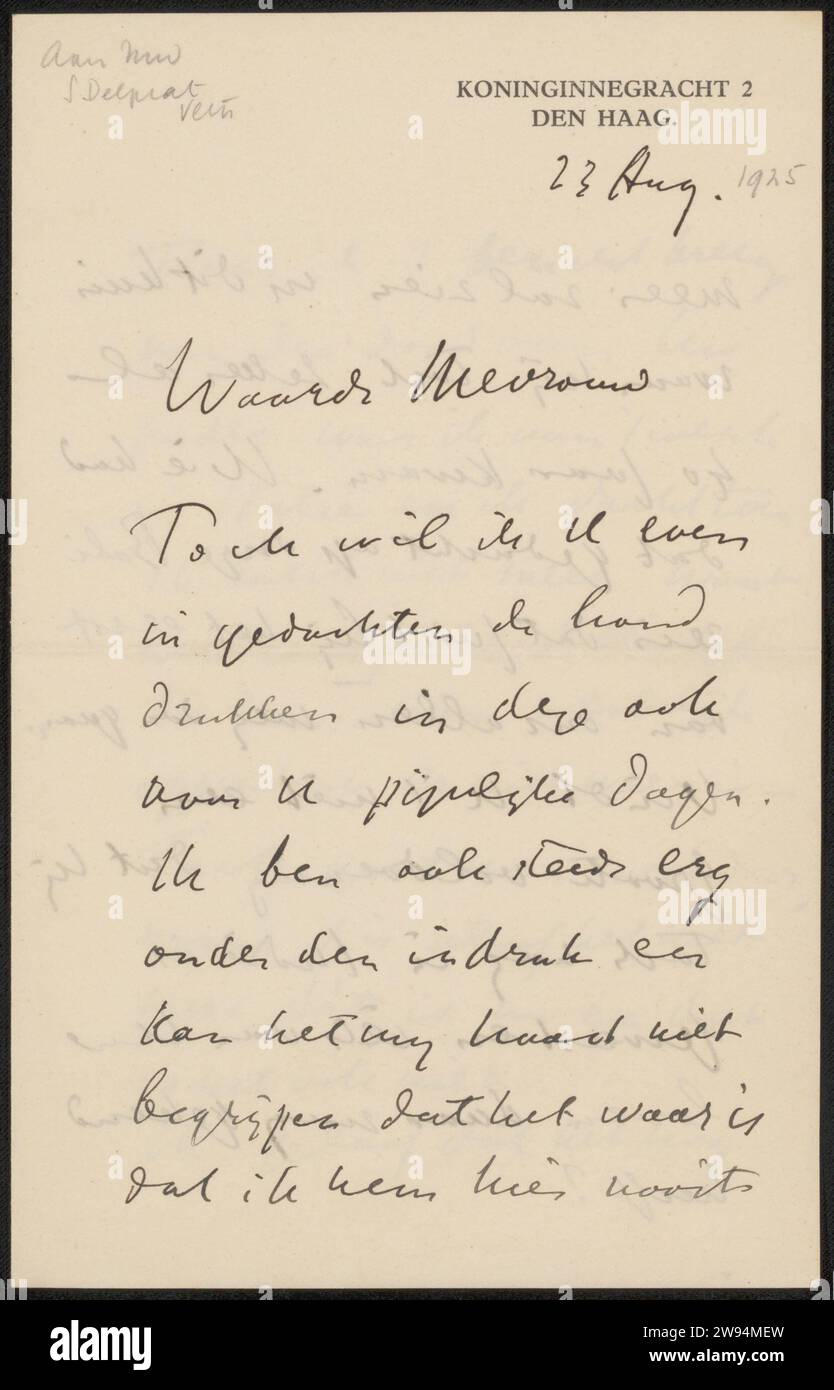 Aan Mw
S Delprat
Veth
KONINGINNEGRACHT 2
DEN HAAG.
23 Aug. 1925
Waarde Mevrouw
Toch wil ik U even
in gedachten de hand
drukken in deze ook
voor U pijnlijke dagen.
Ik ben ook steeds erg
onder den indruk en
kan het mij haast niet
begrijpen dat het waar is
dat ik hem hier nooit
alamy
Image ID: 2W94MEW
www.alamy.com